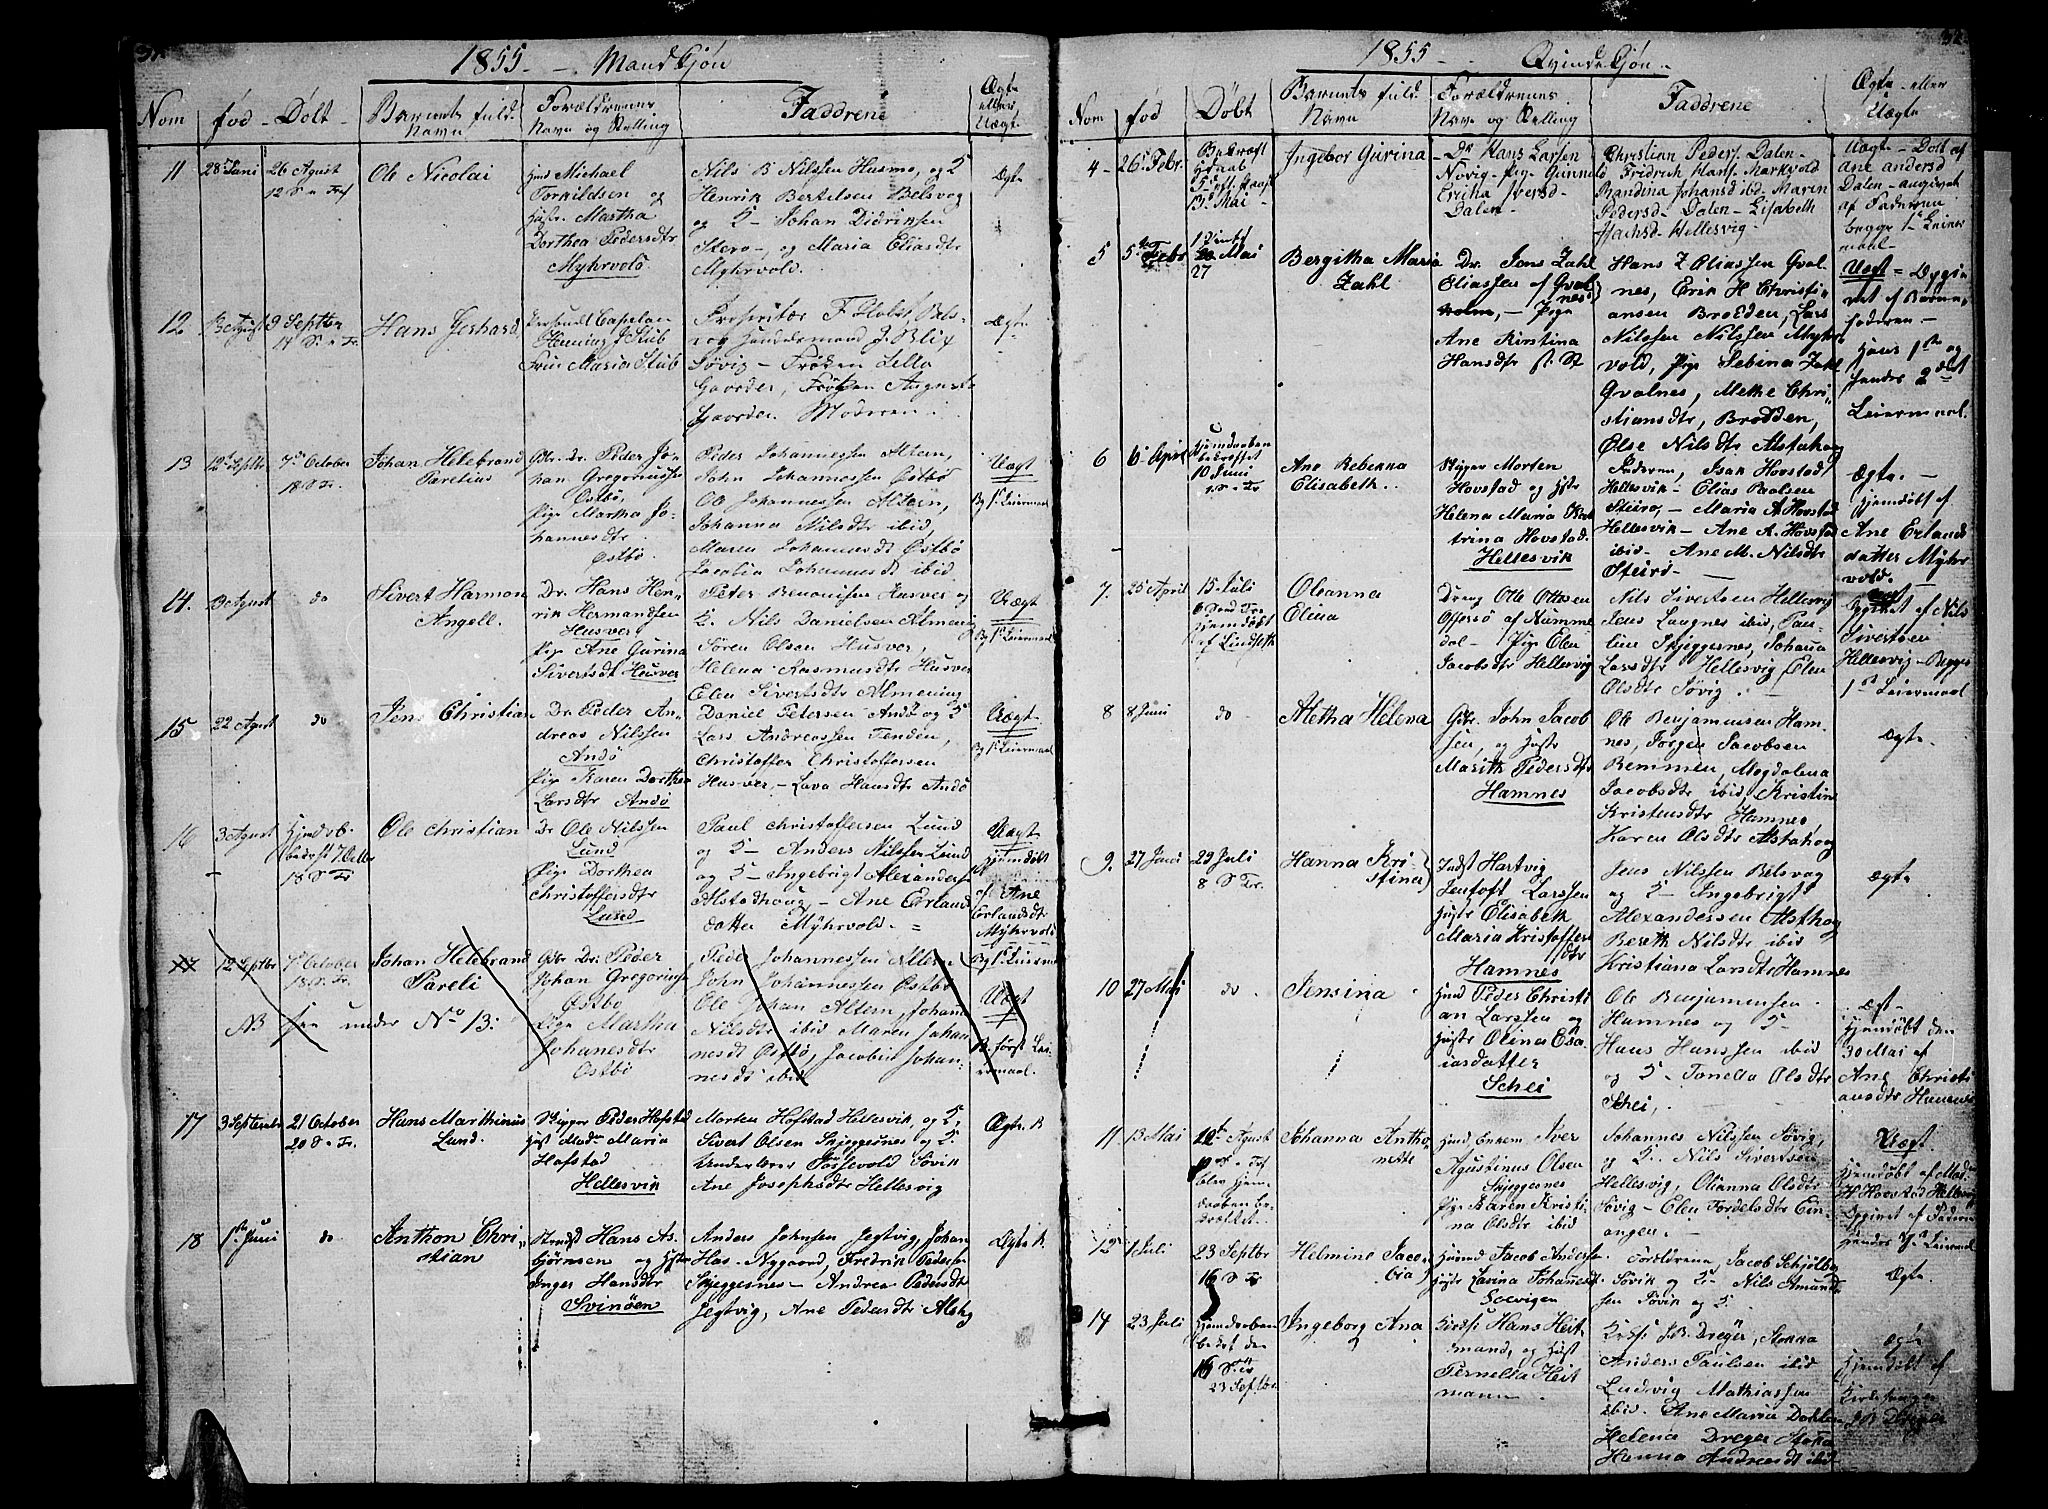 1855 - Mandkjøn
Nom
fød - Døbt -
Barnets fuld. Navn
Forældrenes Navn og Stelling
Faddrene
Ægte eller Uægte
11
28 Juni
26 Agust
12 S. e Tref
Ole Nicolai
Michael
Torkildsen og
Hustr. Martha
Dorthea Pedersdtr
Myhrvold
Nils B Nilssen Husmo, og
Henrik Bertelsen Belsvog
og Johan Didriksen
Stero - og Maria Eliasdtr
Myhrvold.
Ægte
12
13 Agust
9 Septbr
14 S. e Tr.
Hans Gerhard
Personel Capelan
Henning J Stub
Frue Maria Stub
Proprietær F Holst Bels-
vog Handelsmand J. Blix
Søvig - Frøken Lella
Gaarder, Frøken Augusta
Gaarder Moderen.
Ægt.
13
12 Septbr
7 October
18 S. Tr.
Johan Helebrand
Parelius
Dr. Peder Jo-
han Gregoriussen
Østbø,
Pige Martha Jo-
hannesdtr
Østbø.
Peder Johannessen Altern,
John Johannessen Østbø
Ole Johannessen Altern,
Johanna Nilsdtr ibid,
Maren Johannesdt Østbø
Jacobia Johannesdt ibid
Uægt
Bg 1st Leiermaal
14.
13 Agust
do
Sivert Harmon
Angell.
Dr. Hans Hen-
rik Hermandsen
Husver
Pige Ane Gurina
Sivertsdt Husver
Peter Benonisen Husver og
Nils Danielsen Almening
Søren Olsen Husver,
Helena Rasmusdtr Husver
Elen Sivertsdtr Almening
Uægt
Bg 1st Leiermaal
15
22 Agust
do
Jens Christian
Dr. Peder An-
dreas Nilssen
Andø
Pige Karen Dorthea
Larsdtr Andø
Daniel Petersen Andø og
Lars Andreassen Tenden,
Christoffer Christoffersen
Husver, - Lava Hansdtr Andø
Uægt
Bg 1st Leiermaal
16
3 Agust
Hjemdøb.
bekræft 7 Octbr
18 S Tr
Ole Christian
Dr Ole Nilssen
Lund
Pige Dorthea
Christoffersdtr
Lund
Paul Christoffersen Lund
og - Anders Nilssen Lund
og - Ingebrigt Alexanders
Alstadhoug - Ane Erland
datter Myhrvold. =
Uægt
Hjemdøbt
af Ane
Erlandsdt
Myhrvold
Bg 1st Leiermaal
17
12 Septbr
7 October
18 S. Tr.
Johan Helebrand
Pareli
Gdr Dr. Peder
Johan Gregorius
Østbø
Pige Martha
Johanesdtr
Østbø
Peder Johannessen Altern
John Johannessen Østbø
Ole Johan Altern, Johan
Nilsdtr ibid Maren Johan
nesdt Østbø, Jacobia Johan-
nesdt ibid
Uægt
B. først Lei-
ermaal.
NB see under No 13.
17
3 September
21 October
20 S. Tr.
Hans Marthinus
Lund.
Skipper Peder Hofstad
Hust Madm Maria
Hofstad
Hellesvik
Morten Hofstad Hellesvik, og
Sivert Olsen Skjeggesnes og
Underlærer Fossevold Søvik
Ane Josephsdtr Hellesvig
Ægte B
18
1ste Juni
do
Anthon Chri-
stian
Hans As-
bjørnsen og Hustr
Inger Hansdtr
Svinøen
Anders Johnsen Jegtvig, Johan
Has. Nygaard, Fredrik Peders
Skjeggesnes - Andrea Pedersdt
Jegtvig, Ane Pedersdtr Alsthg
Ægte B.
1855 - Qvindekjøn -
Nom
fød
Døbt
Barnets fuld. Navn
Forældrenes Navn og Stelling
Faddrene
Ægte - eller Uægte
4
26 Febr.
Bekræft
Hjdaab
13 Mai
Ingebor Gurina
Dr Hans Larsen
Novig - Pige Gunnel
Ericha Iversd
Dalen -
Christian Peders Dalen -
Fridrich Hans. Markvold
Randina Johansd ibid - Maren
Pedersd - Dalen - Elisabeth
Isachsd - Hellesvig -
Uægt - Døbt af
Ane Andersd
Dalen - angivet
af Faderen
begge 1st Leier
maal -
5
5te Febr
1 Pintsd
Mai
27
Bergitha Maria
Zahl
Dr. Jons Zahl
Eliassen af Qval-
nes, - Pige
Ane Kirstina
Hansdtr p. St
Hans Z Eliassen Qval-
nes, Erik H Christi-
ansen Brodden, Lars
Nilssen Nilssen Myhr
vold, Pige Sebina Zahl
Qvalnes, Methe Chri-
stiansdtr, Brodden,
Olse Nilsdtr Alstahog
Uægt = Opgiv
vet af Barne-
faderen -
Hans 1ste og
hendes 2det
Leiermaal.
6
6 April
Hjemdaaben
bekræftet
10 Juni
1. S. e Tr
Ane Rebekka
Elisabeth.
Skipper Morten
Hovstad og Hstr
Helena Maria Kat
trina Hovstad.
Hellesvik
Faderen, Isak Hovstad
Hellesvik - Elias Paulsen
Steiro, - Maria A Hovstad
Hellesvik - Ane A. Hovstad
ibid - Ane M. Nilsdtr
Steiro -
Ægte. -
Hjemdøbt af
Ane Erlands
datter Myhr
vold.
7.
25 April
15 Juli
6 Sond Tr.
Hjemdøbt
af Lindseth
Oleanna
Elina
Dreng Ole Ottesen
Offersø af Numme
dal - Pige Elen
Jacobsdtr Hellesvig
Nils Sivertsen Hellesvig
Jens Langnes ibid, Pau-
line Skjeggesnes, Johana
Larsdtr Hellesvig Elen
Olsdtr Søvig. -
Uægt
Opgivet af Nils
Sivertsen
Hellesvig - Begges
1st Leiermaal
8
8 Juni
do
Aletha Helena
Gdr. John Jacob
sen, og Hustr
Marith Pedersdtr
Hamnes
Ole Benjaminsen Ham-
nes, Jørgen Jacobsen
Remmen, Magdalena
Jacobsdtr ibid Kristin
Kristensdtr Hamnes,
Karen Olsdtr Alstahog
Ægte.
9.
27 Juni
29 Juli
8 S Tr.
Hanna Kri-
stina
Indst Hartvig
Jentoft Larssen
Hustr Elisabeth
Maria Kristoffers
dtr
Hamnes
Jens Nilssen Belsvag
og Ingebrigt
Alexandersen Alsthog
Bereth Nilsdtr ibid
Kristiana Larsdtr Hamnes
Ægte
10
27 Mai
do.
Jensina
Peder Christi
an Larssen og
Hustr Olina Esa-
iasdatter
Schei
Ole Benjaminsen
Hamnes og
Hans Hanssen ibid
og - Tonetta Olsdtr
Schei,
Ægt -
Hjemdøbt den
30 Mai af
Ane Christi
ansdtr
11
13 Mai
Agust
blev Hjem-
daaben be-
kræftet.
Johanna Antho
nette
Iver
Agustinus Olsen
Skjeggesnes
Pige Karen Kristi-
na Olsdtr ibid
Johannes Nilssen Søvig,
og Nils Sivertsen
Hellesvig, Olianna Olsdtr
Søvig - Elen Tordelsdtr Ein-
angen.
Uægt.
Hjemdøbt af Madm
H Hovstad Hellesvig
Opgivet af Faderen
Hendes Leiermaal
12
1 Juli
23 Septbr
16 S Tr
Helmine Jaco-
bia
Jacob Anders
Hustr Lavina Johanesdt
Soevigen
Forældrene, Jacob Schjølberg
Søvik og - Nils Amund
sen Søvik og
Ægte.
14
23 Juli
Hjemdaaben
bekræft den
16 S.
23 Septbr
Ingeborg Ana
Kirks. Hans Heit
mand, og Hust
Pernella Heit
mann
Kirks. J. B. Dreyer, Stokka
Anders Paulsen ibid
Ludvig Mathiassen
ibid. Ane Maria Dahlen
Helena Dreyer Stokka
Hanna Andreasdt ibid
Ægt
Hjemdøbt af
Kirkesanger
J B Dreyer